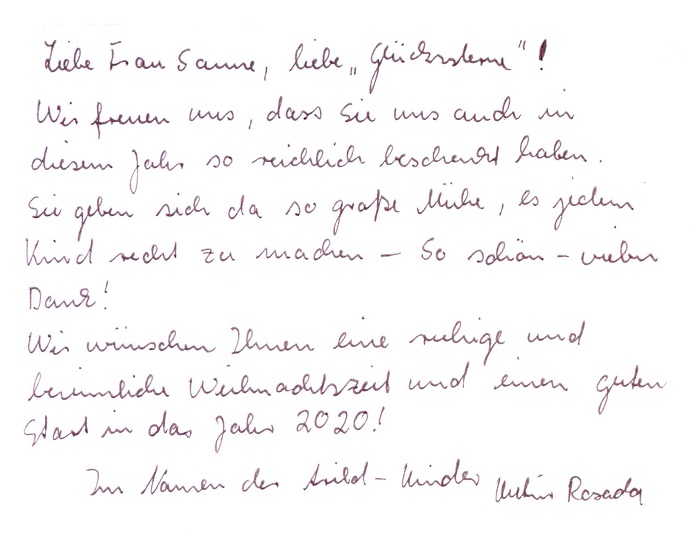 Liebe Frau Sanne, liebe „Glückssterne"!
Wir freuen uns, dass Sie uns auch in
diesem Jahr so reichlich beschenkt haben.
Sie geben sich da so große Mühe, es jedem
Kind recht zu machen – So schön – vielen
Dank!
Wir wünschen Ihnen eine ruhige und
besinnliche Weihnachtszeit und einen guten
Start in das Jahr 2020!
Im Namen der Kinder Rosada